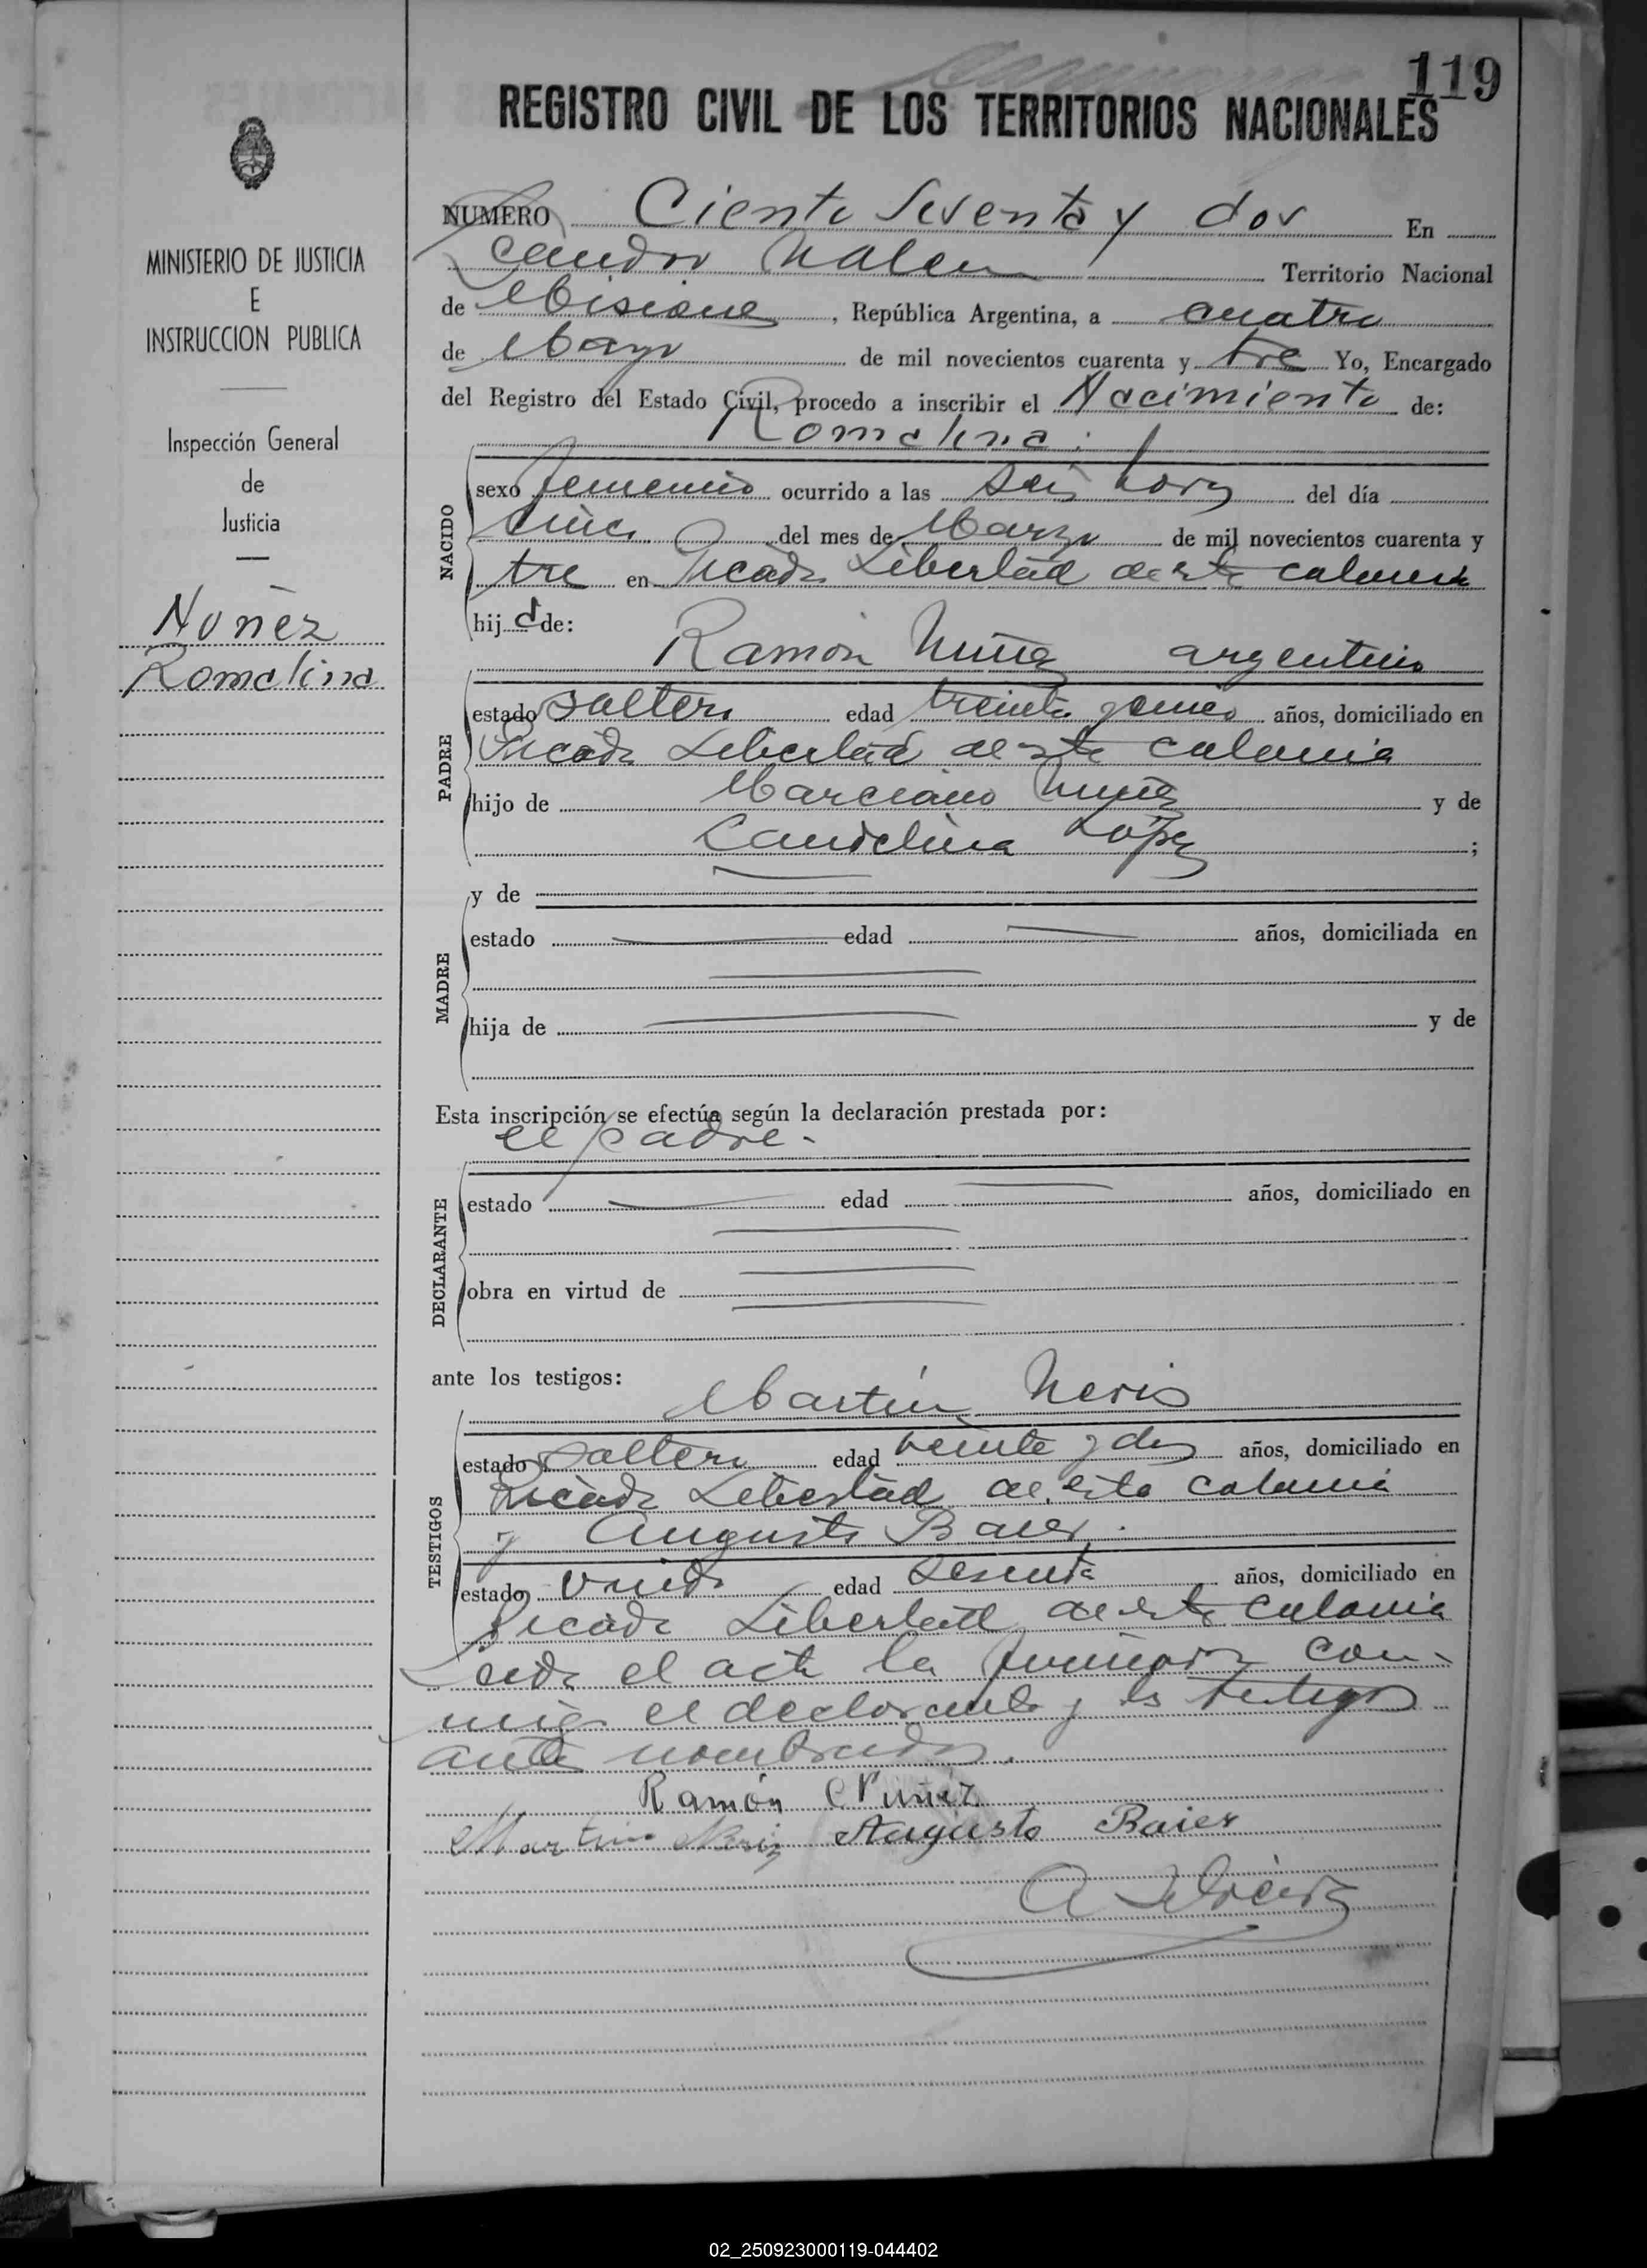 119
REGISTRO CIVIL DE LOS TERRITORIOS NACIONALES
MINISTERIO DE JUSTICIA
E
INSTRUCCION PUBLICA
Inspección General
de
Justicia
Nuñez
Romalina
NUMERO Ciento Sesenta y dos En
Leandro N Alem Territorio Nacional
de Misiones, República Argentina, a cuatro
de Mayo de mil novecientos cuarenta y tre Yo, Encargado
del Registro del Estado Civil, procedo a inscribir el Nacimiento de:
Romalina
NACIDO
sexo femenino ocurrido a las seis horas del día
cinco del mes de Marzo de mil novecientos cuarenta y
tre en Picada Libertad de esta colonia
hija de:
Ramón Nuñez argentino
PADRE
estado soltero edad treinta y cinco años, domiciliado en
Picada Libertad de esta colonia
hijo de Marciano Nuñez y de
Candelina López ;
MADRE
y de
estado edad años, domiciliada en
hija de y de
Esta inscripción se efectúa según la declaración prestada por:
el padre.
DECLARANTE
estado edad años, domiciliado en
obra en virtud de
ante los testigos:
Martín Neris
TESTIGOS
estado soltero edad veinte y dos años, domiciliado en
Picada Libertad de esta colonia
y Augusto Baier.
estado viudo edad sesenta años, domiciliado en
Picada Libertad de esta colonia
Leida el acta la firmaron con-
migo el declarante y los testigos
antes nombrados.
Ramón Nuñéz
Martin Neris Augusto Baier
02_250923000119-044402